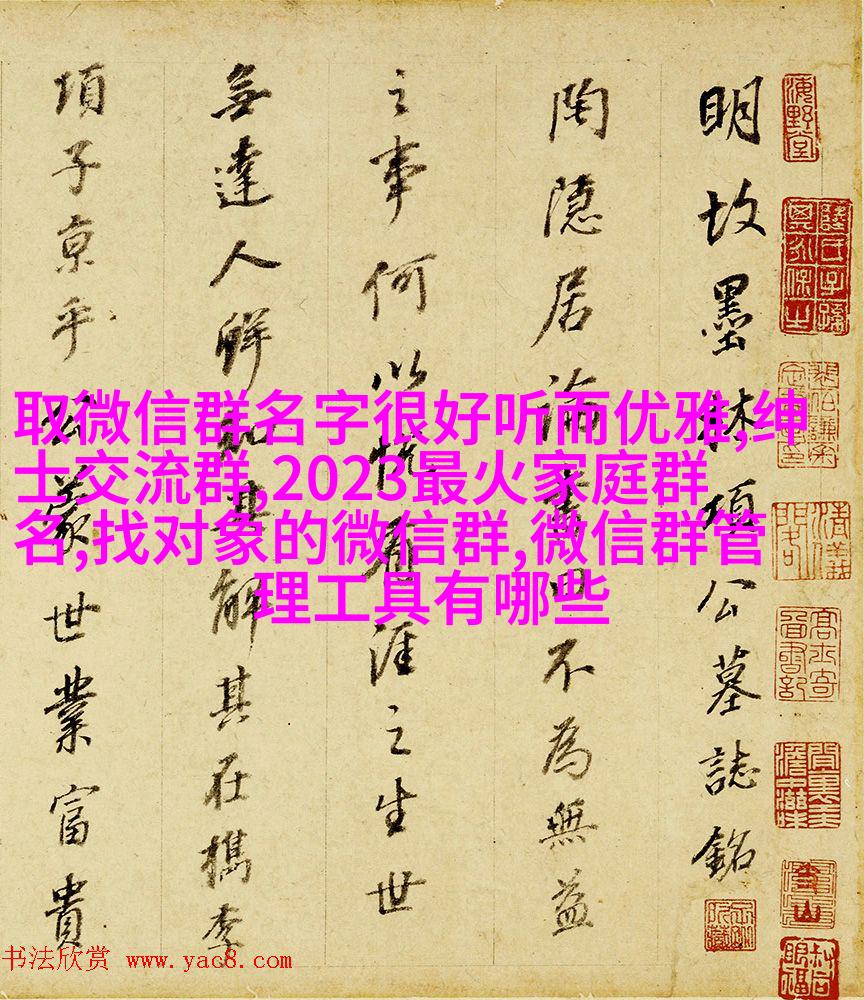 明故墨林項公墓誌銘
陶隱居論書曰不為無益
之事何以悅有涯之生世
無達人鮮知其解其在檇李
項子京乎蒙世業富貴
取微信群名字很好听而优雅,绅
士交流群,2023最火家庭群
名,找对象的微信群,微信群管
理工具有哪些
海野堂
书法欣赏 www.yac8.com